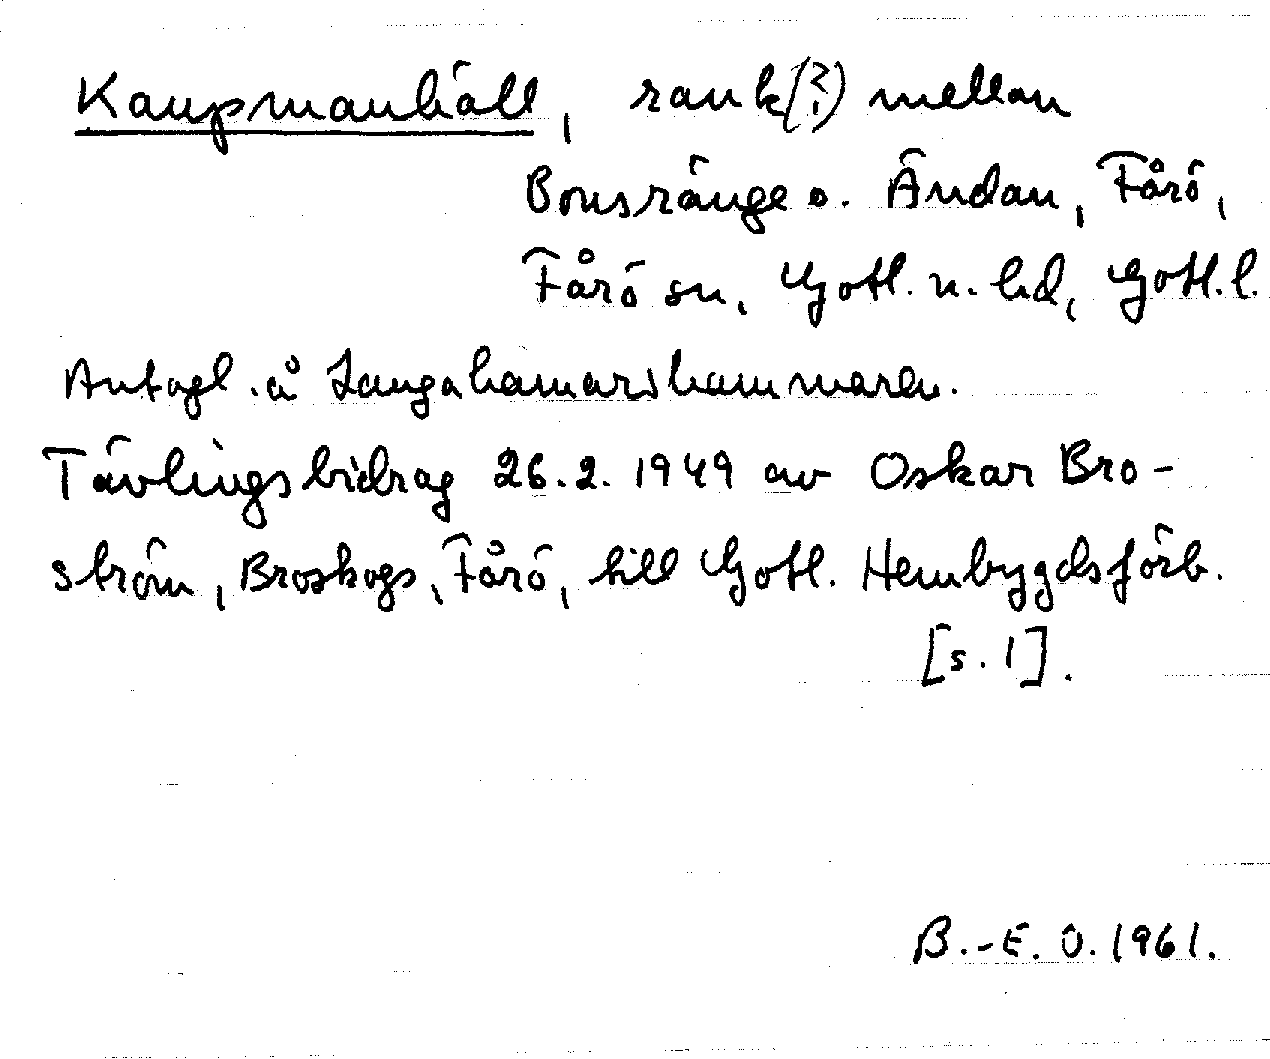 Kaupmanhäll, rauk(?) mellan
Bonsränge o. Ändan, Fårö,
Fårö sn, Gotl. n. hd, Gotl. l.
Antagl. å Langahamarshammaren.
Tävlingsbidrag 26.2.1949 av Oskar Bro-
ström, Broskogs, Fårö, till Gotl. Hembygdsförb.
[s. 1].
B.-E. O. 1961.